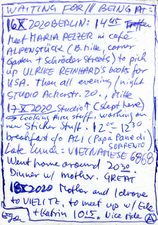 WAITING FOR // BEING AT:
16 X 2020 BERLIN: 14 45
Meet MARIA PELZER in café
ALPENSTÜCK (B. Mitte, corner
Garten + Schröder Streets) to pick
up ULRIKE REINHARD'S books for
USA. Take all evening, night
STUDIO Ackerstr. 20, Mitte
17 X 2020 Studio (slept here)
looking thru stuff, working on
new Sticker Stuff. 12 15 - 12 50
breakfast c/o ALI (Papa Pane di
SORRENTO
Late lunch: VIETNAMESE 6868
Went home around 20 30
Dinner w/ mother. GREAT
18 X 2020 Mother and I drove
to VIELITZ, to meet up w/ Gabe
+ Katrin 10 15. Nice ride